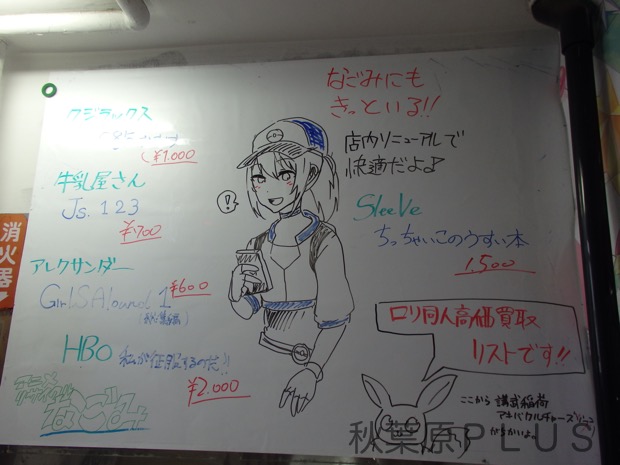 クジラックス
(¥1.000
牛乳屋さん
Js.123
¥700
アレクサンダー
¥600
GirlS Around 1
HBO 私が征服するのだ!!
¥2.000
なごみ
なごみにも
きっといる!!
店内リニューアルで
快適だよ♪
!?
SleeVe
ちっちゃいこのうすい本
1.500
ロリ同人高価買取
リストです!!
ここから 講武稲荷
アキバカルチャーズゾーン
が近いよ。
消火器
秋葉原PLUS